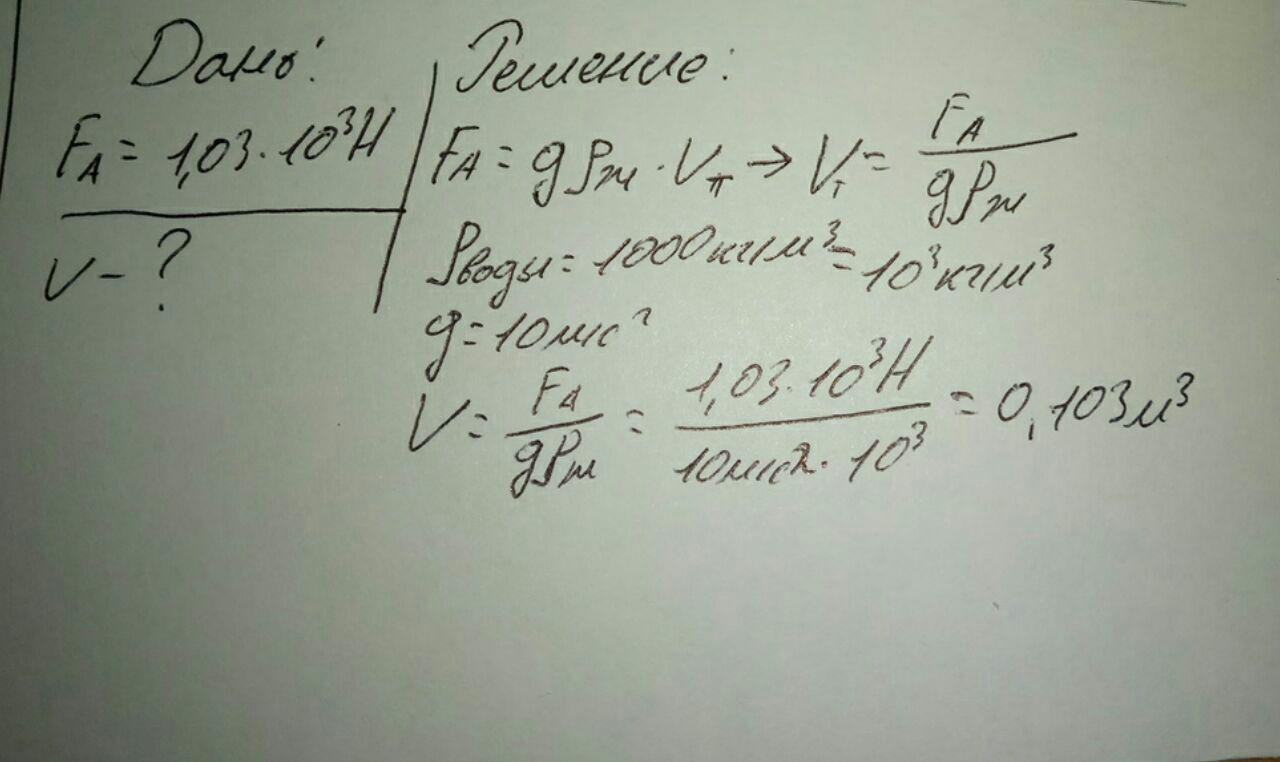 Дано:
F_A = 1,03 · 10³ Н
V - ?
Решение:
F_A = gρ_ж · V_т → V_т = F_A / gρ_ж
ρ_воды = 1000 кг/м³ = 10³ кг/м³
g = 10 м/с²
V = F_A / gρ_ж = 1,03 · 10³ Н / 10 м/с² · 10³ = 0,103 м³